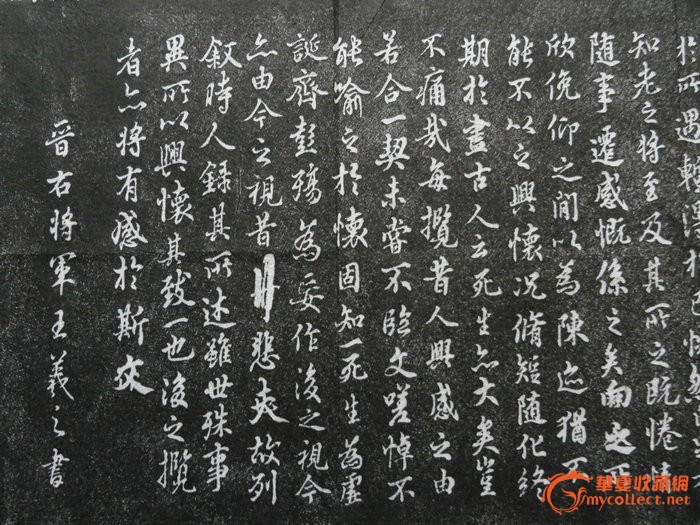 於所遇輒得於己怏然自足不
知老之將至及其所之既惓情
随事遷感慨係之矣向之所
欣俛仰之間以為陳迹猶不
能不以之興懷況脩短随化終
期於盡古人云死生亦大矣豈
不痛哉每攬昔人興感之由
若合一契未嘗不臨文嗟悼不
能喻之於懷固知一死生為虛
誕齊彭殤為妄作後之視今
亦由今之視昔悲夫故列
叙時人錄其所述雖世殊事
異所以興懷其致一也後之攬
者亦將有感於斯文
晉右將軍王羲之書
華夏收藏網
mycollect.net